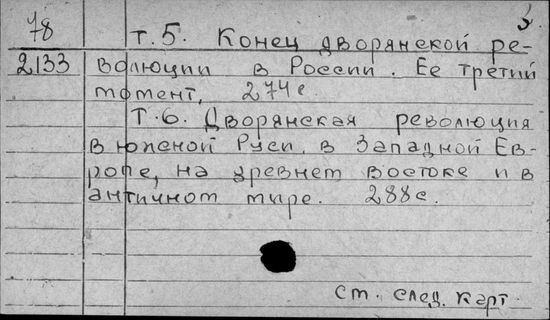 78 3.
т. 5. Конец дворянской ре-
2133 волюции в России. Ее третий
момент, 274 с
Т. 6. Дворянская революция
в южной Руси, в Западной Ев-
ропе, на древнем востоке и в
античном мире. 288 с.
ст. след. карт.